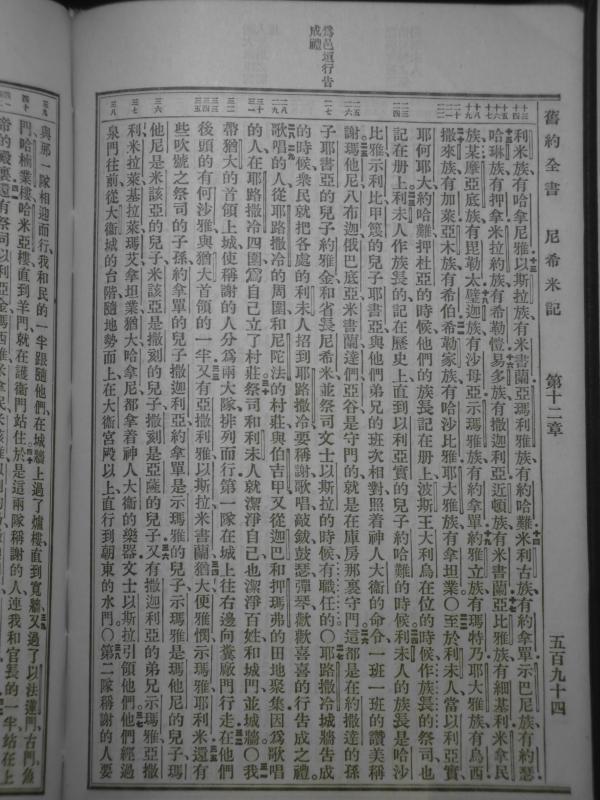 舊約全書 尼希米記 第十二章 五百九十四
利米族有哈拿尼雅以斯拉族有米書蘭亞瑪利雅族有約哈難米利古族有約拿單示巴尼族有約瑟
哈琳族有押拿米拉約族有希勒愷易多族有撒迦利亞近頓族有米書蘭亞比雅族有細基利米拿民
族某摩亞底族有毘勒太璧迦族有沙母亞示瑪雅族有約拿單約雅立族有瑪特乃耶大雅族有烏西
撒來族有加萊亞木族有希伯希勒家族有哈沙比雅耶大雅族有拿坦業〇至於利未人當以利亞實
耶何耶大約哈難押杜亞的時候他們的族長記在册上波斯王大利烏在位的時候作族長的祭司也
記在册上利未人作族長的記在歷史上直到以利亞實的兒子約哈難的時候利未人的族長是哈沙
比雅示利比甲篾的兒子耶書亞與他們弟兄的班次相對照着神人大衛的命令一班一班的讚美稱
謝瑪他尼八布迦俄巴底亞米書蘭達們亞谷是守門的就是在庫房那裏守門這都是在約撒達的孫
子耶書亞的兒子約雅金和省長尼希米並祭司文士以斯拉的時候有職任的〇耶路撒冷城牆告成
的時候衆民就把各處的利未人招到耶路撒冷要稱謝歌唱敲鈸鼓瑟彈琴歡歡喜喜的行告成之禮
歌唱的人從耶路撒冷的周圍和尼陀法的村莊與伯吉甲又從迦巴和押瑪弗的田地聚集因爲歌唱
的人在耶路撒冷四圍爲自己立了村莊祭司和利未人就潔淨自己也潔淨百姓和城門並城牆〇我
帶猶大的首領上城使稱謝的人分爲兩大隊排列而行第一隊在城上往右邊向糞廠門行走在他們
後頭的有何沙雅與猶大首領的一半又有亞撒利雅以斯拉米書蘭猶大便雅憫示瑪雅耶利米還有
些吹號之祭司的子孫約拿單的兒子撒迦利亞約拿單是示瑪雅的兒子示瑪雅是瑪他尼的兒子瑪
他尼是米該亞的兒子米該亞是撒刻的兒子撒刻是亞薩的兒子又有撒迦利亞的弟兄示瑪雅亞撒
利米拉萊基拉萊瑪艾拿坦業猶大哈拿尼都拿着神人大衛的樂器文士以斯拉引領他們他們經過
泉門往前從大衛城的台階隨地勢而上在大衛宮殿以上直行到朝東的水門〇第二隊稱謝的人要
爲邑垣行告
成禮
與那一隊相迎而行我和民的一半跟隨他們在城牆上過了爐樓直到寬牆又過了以法蓮門古門魚
門哈楠業樓哈米亞樓直到羊門就在護衛門站住於是這兩隊稱謝的人連我和官長的一半站在上